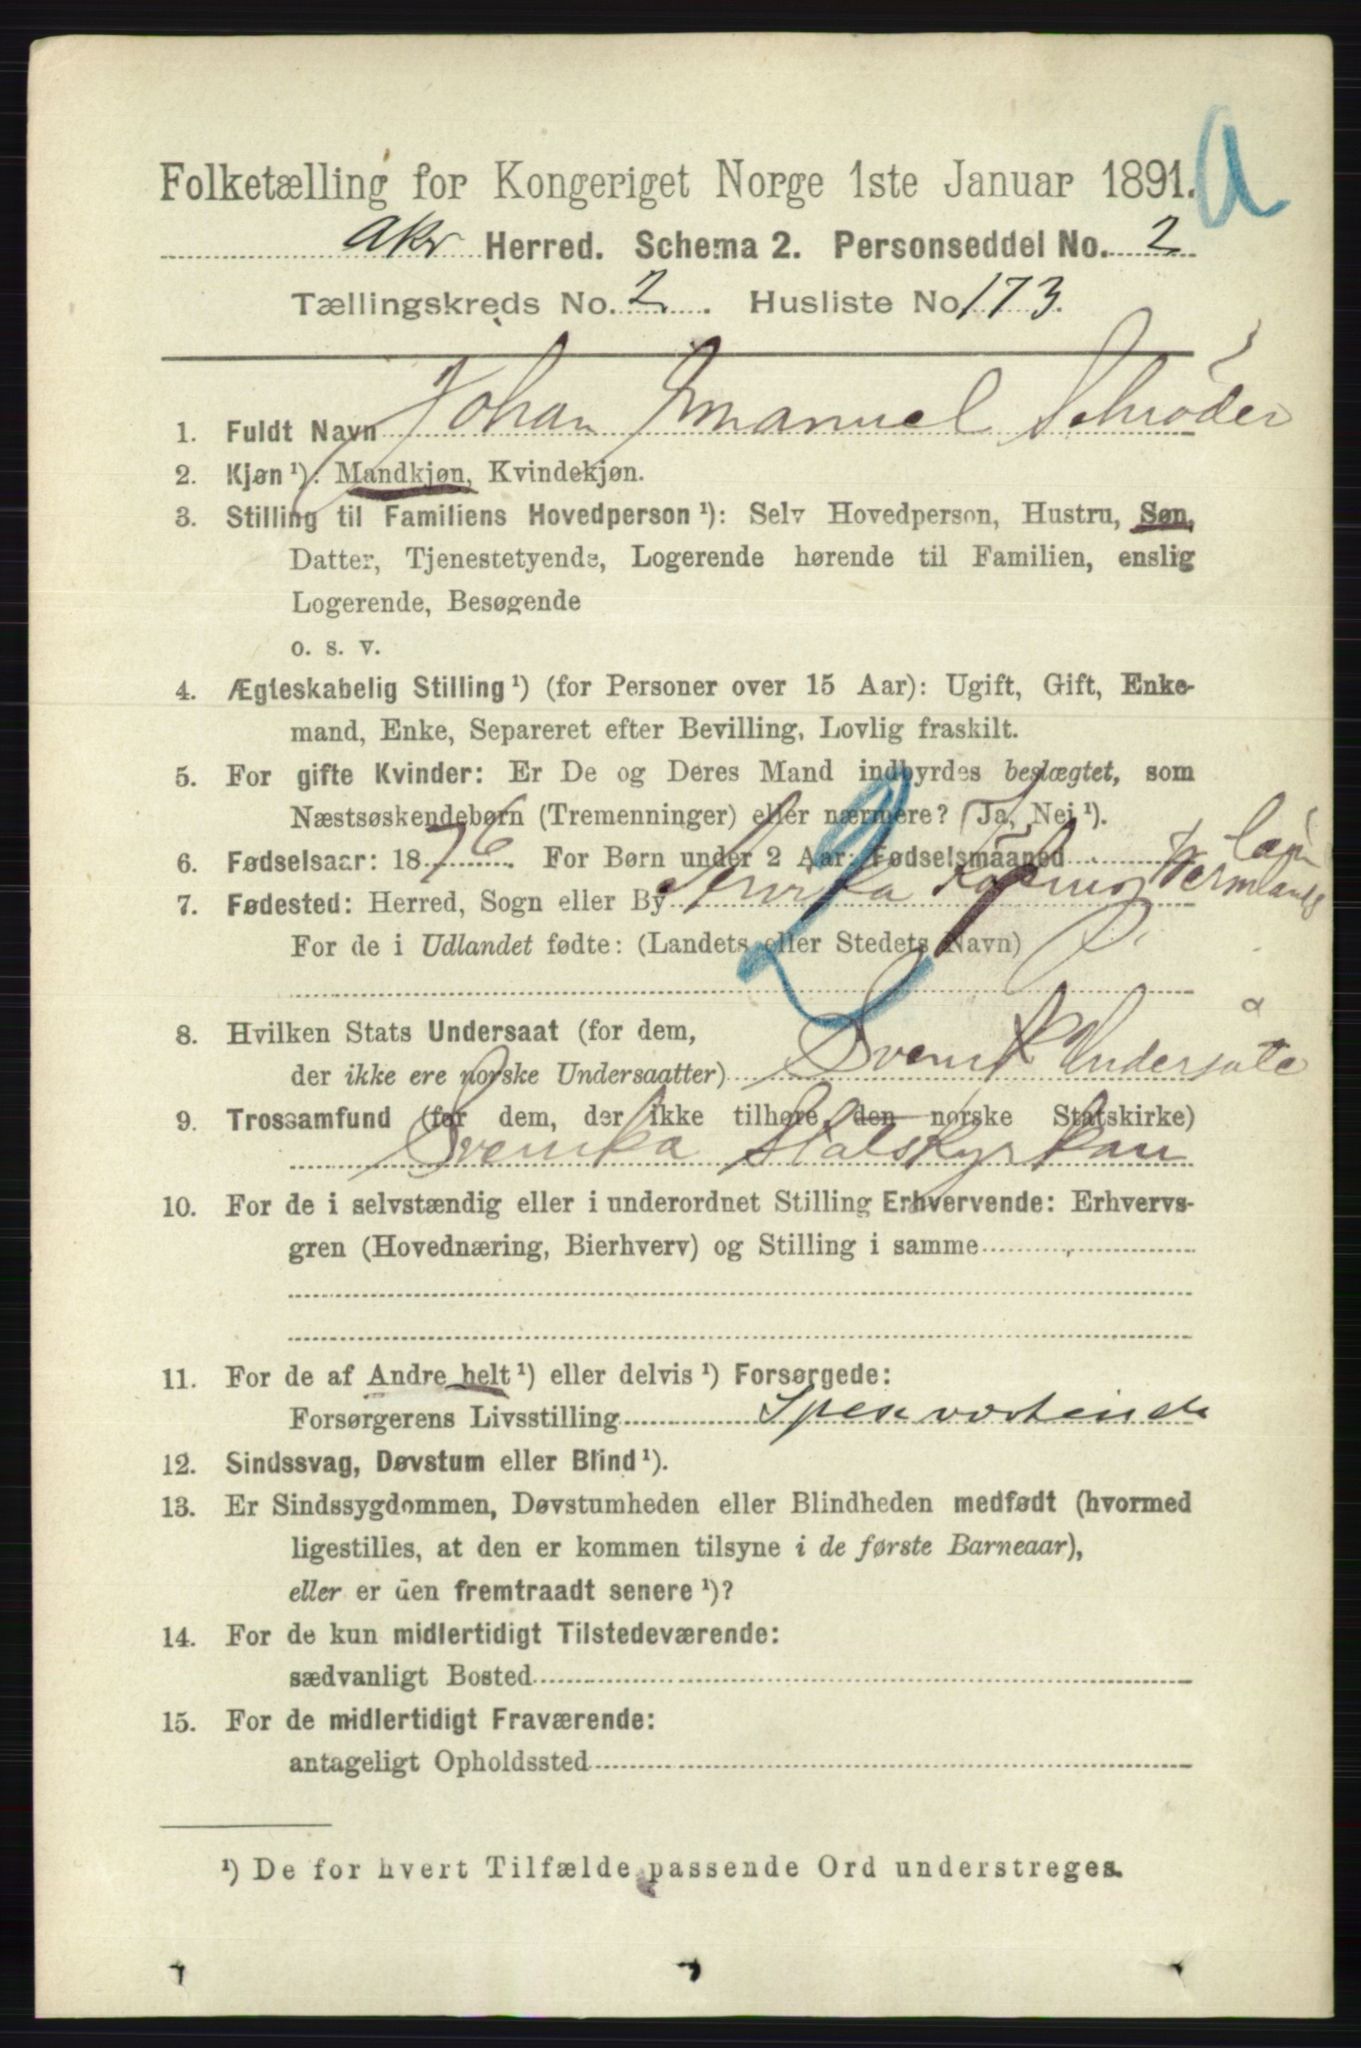 a
Folketælling for Kongeriget Norge 1ste Januar 1891.
Akr Herred. Schema 2. Personseddel No. 2
Tællingskreds No. 2. Husliste No 173.
1. Fuldt Navn Johan Emanuel Schröder
2. Kjøn ¹). Mandkjøn, Kvindekjøn.
3. Stilling til Familiens Hovedperson ¹): Selv Hovedperson, Hustru, Søn,
Datter, Tjenestetyende, Logerende hørende til Familien, enslig
Logerende, Besøgende
o. s. v.
4. Ægteskabelig Stilling ¹) (for Personer over 15 Aar): Ugift, Gift, Enke-
mand, Enke, Separeret efter Bevilling, Lovlig fraskilt.
5. For gifte Kvinder: Er De og Deres Mand indbyrdes beslægtet, som
Næstsøskendebørn (Tremenninger) eller nærmere? (Ja, Nei ¹).
6. Fødselsaar: 1876. For Børn under 2 Aar: Fødselsmaaned
7. Fødested: Herred, Sogn eller By Köping Wermlands
For de i Udlandet fødte: (Landets eller Stedets Navn)
8. Hvilken Stats Undersaat (for dem,
der ikke ere norske Undersaatter) Svensk Undersåte
9. Trossamfund (for dem, der ikke tilhøre den norske Statskirke)
Svenska Statskyrkan
10. For de i selvstændig eller i underordnet Stilling Erhvervende: Erhvervs-
gren (Hovednæring, Bierhverv) og Stilling i samme
11. For de af Andre helt ¹) eller delvis ¹) Forsørgede:
Forsørgerens Livsstilling
12. Sindssvag, Døvstum eller Blind ¹).
13. Er Sindssygdommen, Døvstumheden eller Blindheden medfødt (hvormed
ligestilles, at den er kommen tilsyne i de første Barneaar),
eller er den fremtraadt senere ¹)?
14. For de kun midlertidigt Tilstedeværende:
sædvanligt Bosted
15. For de midlertidigt Fraværende:
antageligt Opholdssted
¹) De for hvert Tilfælde passende Ord understreges.